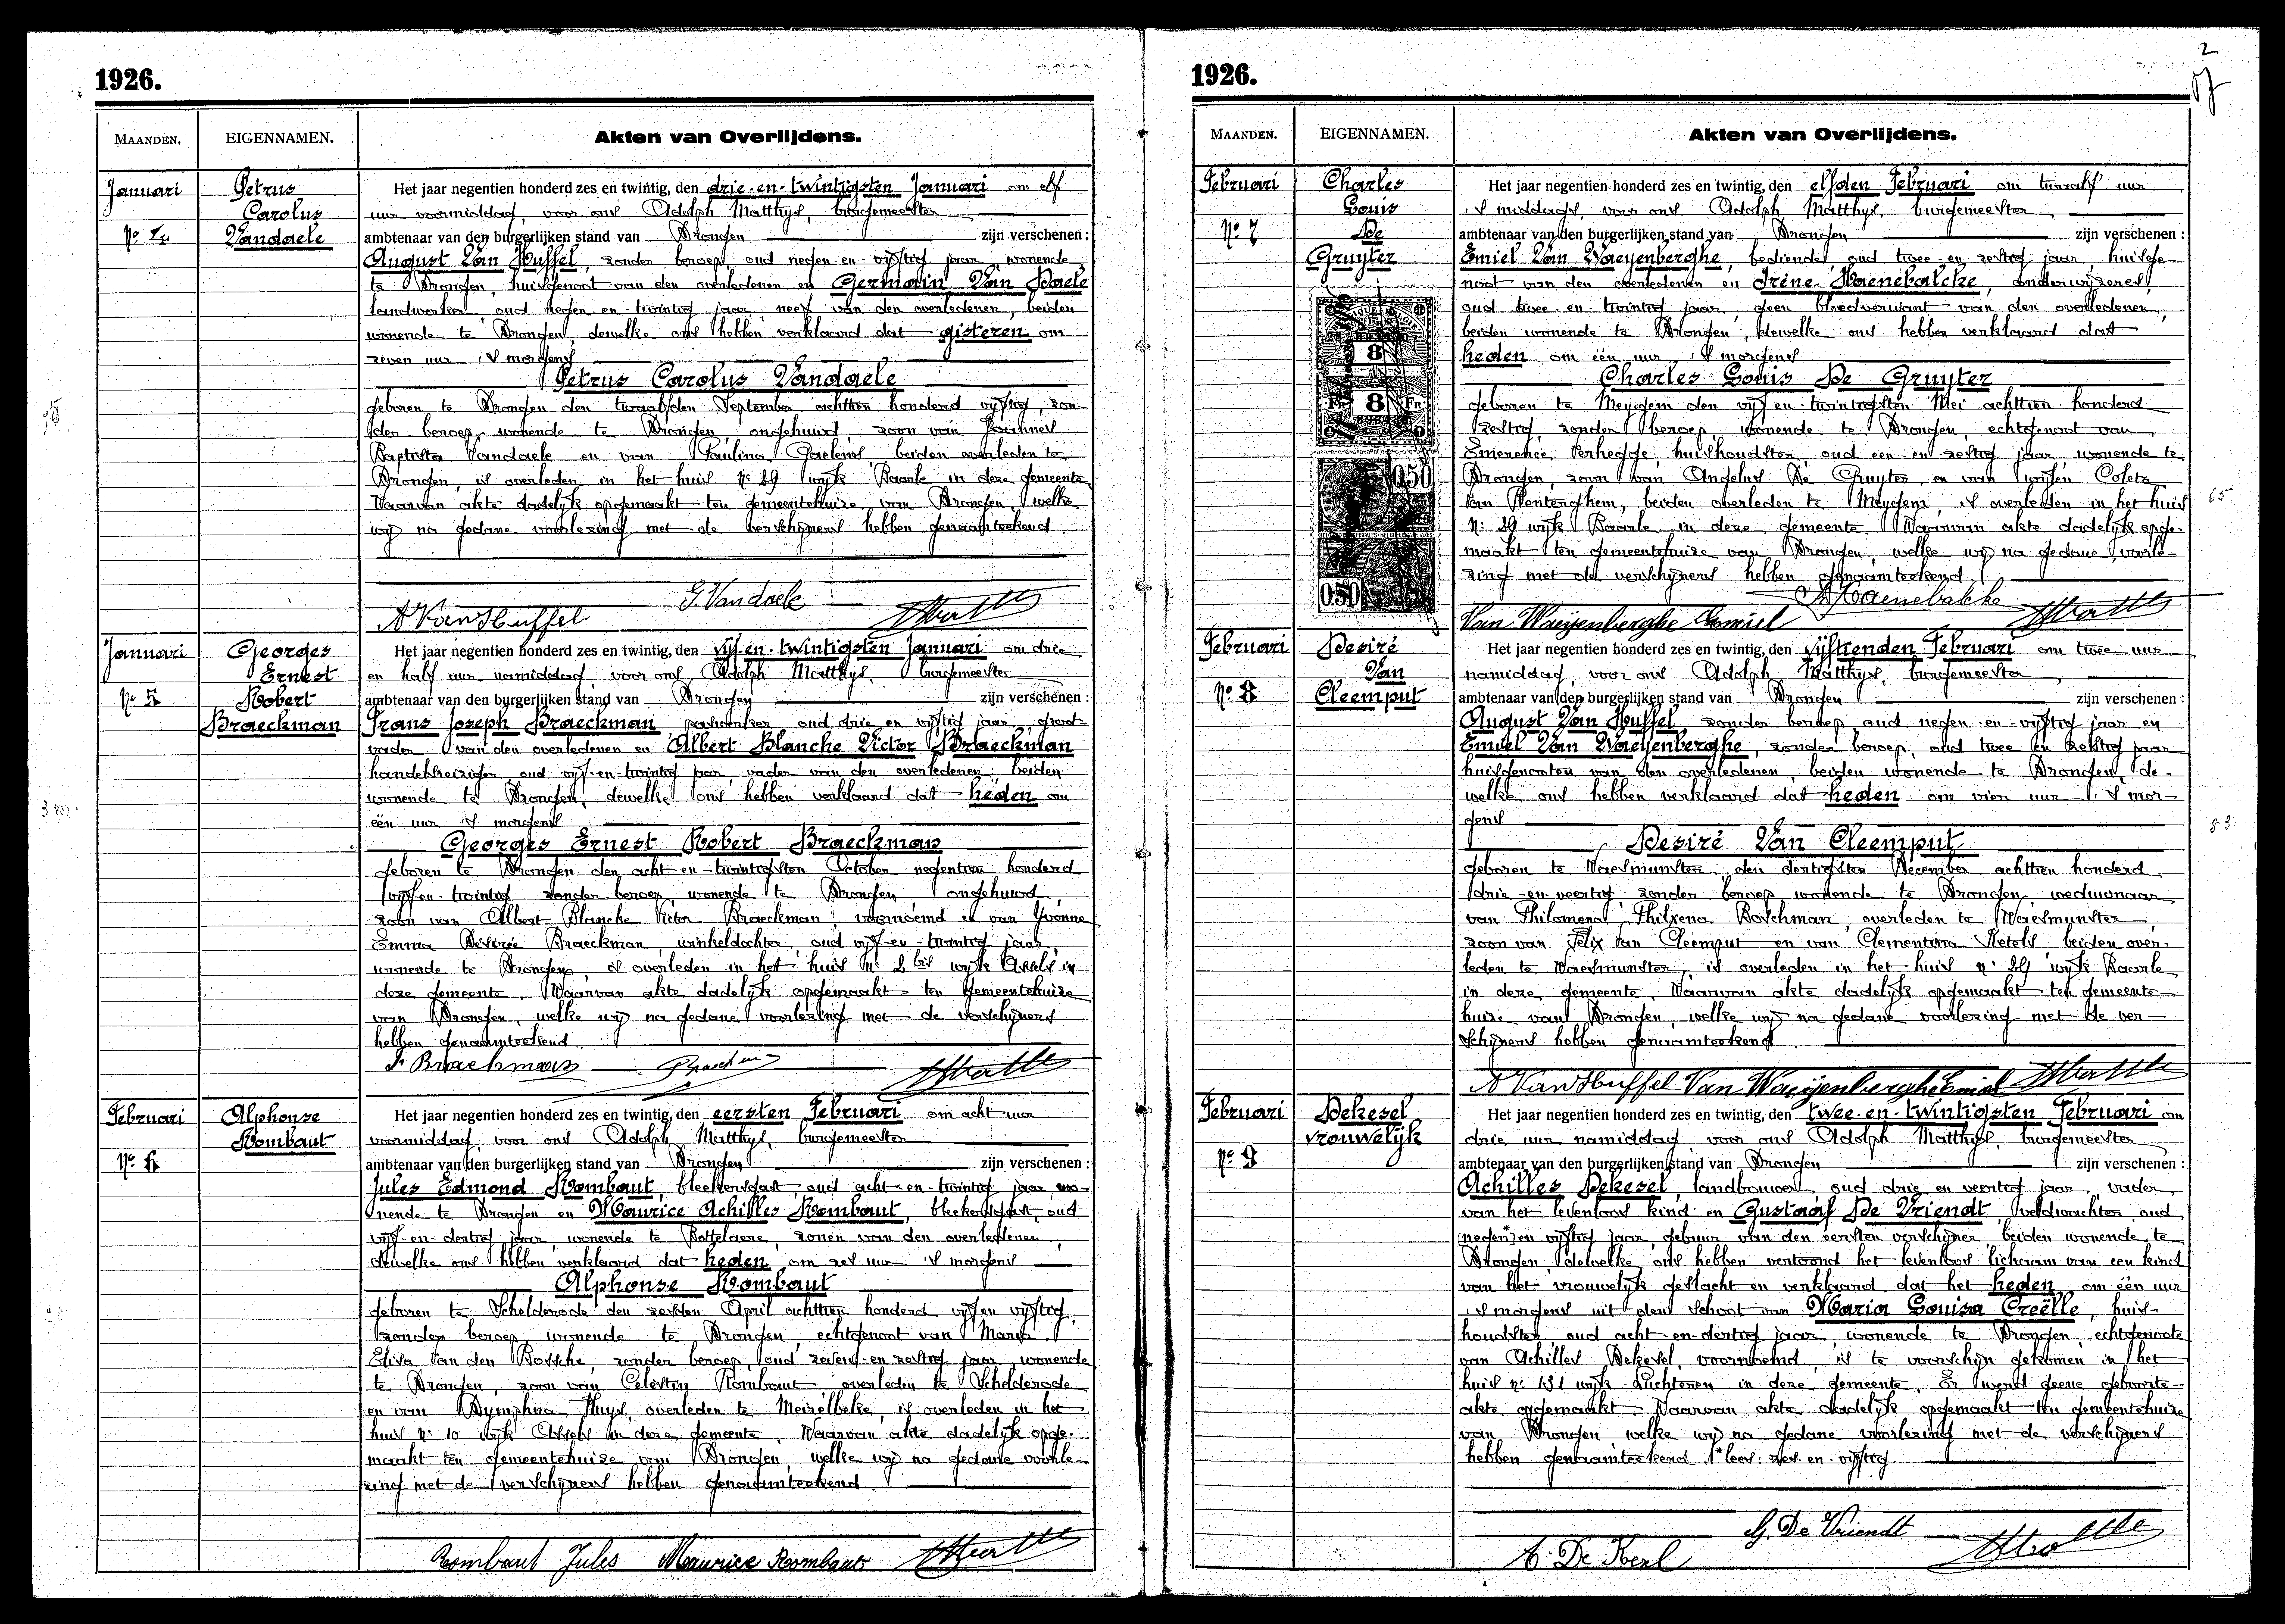 1926.
MAANDEN.
EIGENNAMEN.
Akten van Overlijdens.
Januari
Nº 4
Petrus
Carolus
Vandaele
Het jaar negentien honderd zes en twintig, den drie-en-twintigsten Januari om elf
uur voormiddag, voor ons Adolph Matthys, burgemeester
ambtenaar van den burgerlijken stand van Drongen zijn verschenen :
August Van Huffel, zonder beroep, oud negen-en-vijftig jaar, wonende
te Drongen, huisgenoot van den overledenen en Germain Van Daele
landwerker, oud negen-en-twintig jaar, neef van den overledenen, beiden
wonende te Drongen, dewelke ons hebben verklaard dat gisteren om
zeven uur 's morgens
Petrus Carolus Vandaele
geboren te Drongen den twaalfden September achttien honderd vijftig, zon-
der beroep, wonende te Drongen, ongehuwd, zoon van Joannes
Baptista Vandaele en van Paulina Goelens, beiden overleden te
Drongen, is overleden in het huis Nº 29 wijk Baarle in deze gemeente.
Waarvan akte dadelijk opgemaakt ten gemeentehuize van Drongen, welke
wij na gedane voorlezing met de verschijners hebben genaamteekend.
A Van Huffel G. Vandaele
Januari
Nº 5
Georges
Ernest
Robert
Braeckman
Het jaar negentien honderd zes en twintig, den vijf-en-twintigsten Januari om drie
en half uur namiddag, voor ons Adolph Matthys, burgemeester
ambtenaar van den burgerlijken stand van Drongen zijn verschenen :
Frans Joseph Braeckman, oud drie en vijftig jaar, groot-
vader van den overledenen en Albert Blanche Victor Braeckman
handelsreiziger, oud vijf-en-twintig jaar, vader van den overledenen, beiden
wonende te Drongen, dewelke ons hebben verklaard dat heden om
één uur 's morgens
Georges Ernest Robert Braeckman
geboren te Drongen den acht-en-twintigsten October negentien honderd
vijf-en-twintig, zonder beroep, wonende te Drongen, ongehuwd,
zoon van Albert Blanche Victor Braeckman voornoemd en van Yvonne
Emma Désirée Braeckman, winkeldochter, oud vijf-en-twintig jaar,
wonende te Drongen, is overleden in het huis Nº 2 bis wijk Assels in
deze gemeente. Waarvan akte dadelijk opgemaakt ten gemeentehuize
van Drongen, welke wij na gedane voorlezing met de verschijners
hebben genaamteekend.
F. Braeckman Braeckman
Februari
Nº 6
Alphonse
Rombaut
Het jaar negentien honderd zes en twintig, den eersten Februari om acht uur
voormiddag, voor ons Adolph Matthys, burgemeester
ambtenaar van den burgerlijken stand van Drongen zijn verschenen :
Jules Edmond Rombaut, bleekersgast, oud acht-en-twintig jaar, wo-
nende te Drongen en Maurice Achilles Rombaut, bleekersgast, oud
vijf-en-dertig jaar, wonende te Bottelaere, zonen van den overledenen,
dewelke ons hebben verklaard dat heden om zes uur 's morgens
Alphonse Rombaut
geboren te Schelderode den zesden April achttien honderd vijf en vijftig,
zonder beroep, wonende te Drongen, echtgenoot van Maria
Elisa Van den Bossche, zonder beroep, oud zeven-en-zestig jaar, wonende
te Drongen, zoon van Celestin Rombaut overleden te Schelderode
en van Dymphna Huys, overleden te Meirelbeke, is overleden in het
huis Nº 10 wijk Assels in deze gemeente. Waarvan akte dadelijk opge-
maakt ten gemeentehuize van Drongen, welke wij na gedane voorle-
zing met de verschijners hebben genaamteekend.
Rombaut Jules Maurice Rombaut
2
1926.
MAANDEN.
EIGENNAMEN.
Akten van Overlijdens.
Februari
Nº 7
Charles
Louis
De
Gruyter
8
8
0.50
0.50
Het jaar negentien honderd zes en twintig, den elfden Februari om twaalf uur
's middags, voor ons Adolph Matthys, burgemeester
ambtenaar van den burgerlijken stand van Drongen zijn verschenen :
Emiel Van Waeyenberghe, bediende, oud twee-en-zestig jaar, huisge-
noot van den overledenen en Irène Haenebalcke, onderwijzeres,
oud twee-en-twintig jaar, geen bloedverwant van den overledenen,
beiden wonende te Drongen, dewelke ons hebben verklaard dat
heden om één uur 's morgens
Charles Louis De Gruyter
geboren te Meygem den vijf-en-twintigsten Mei achttien honderd
zestig, zonder beroep, wonende te Drongen, echtgenoot van
Emerence Verhegge, huishoudster, oud een-en-zestig jaar, wonende te
Drongen, zoon van Angelus De Gruyter en van wijlen Coleta
Van Renterghem, beiden overleden te Meygem, is overleden in het huis
Nº 29 wijk Baarle in deze gemeente. Waarvan akte dadelijk opge-
maakt ten gemeentehuize van Drongen, welke wij na gedane voorle-
zing met de verschijners hebben genaamteekend.
65
Van Waeyenberghe Emiel Haenebalcke
Februari
Nº 8
Desiré
Van
Cleemput
Het jaar negentien honderd zes en twintig, den vijftienden Februari om twee uur
namiddag, voor ons Adolph Matthys, burgemeester
ambtenaar van den burgerlijken stand van Drongen zijn verschenen :
August Van Huffel, zonder beroep, oud negen-en-vijftig jaar en
Emiel Van Waeyenberghe, zonder beroep, oud twee en zestig jaar
huisgenooten van den overledenen, beiden wonende te Drongen, de-
welke ons hebben verklaard dat heden om vier uur 's mor-
gens
Desiré Van Cleemput
geboren te Waesmunster den dertigsten December achttien honderd
drie-en-veertig, zonder beroep, wonende te Drongen, weduwnaar
van Philomena Philxena Boschman, overleden te Waesmunster,
zoon van Felix Van Cleemput en van Clementina Ketels beiden over-
leden te Waesmunster, is overleden in het huis nº 29 wijk Baarle
in deze gemeente. Waarvan akte dadelijk opgemaakt ten gemeente-
huize van Drongen, welke wij na gedane voorlezing met de ver-
schijners hebben genaamteekend.
83
A Van Huffel Van Waeyenberghe Emiel
Februari
Nº 9
Dekesel
vrouwelijk
Het jaar negentien honderd zes en twintig, den twee-en-twintigsten Februari om
drie uur namiddag, voor ons Adolph Matthys, burgemeester
ambtenaar van den burgerlijken stand van Drongen zijn verschenen :
Achilles Dekesel, landbouwer, oud drie en veertig jaar, vader
van het levenloos kind en Gustaaf De Vriendt, veldwachter, oud
[negen]* en vijftig jaar, gebuur van den eersten verschijner, beiden wonende te
Drongen, dewelke ons hebben vertoond het levenloos lichaam van een kind
van het vrouwelijk geslacht en verklaard dat het heden om één uur
's morgens uit den schoot van Maria Louisa Creëlle, huis-
houdster, oud acht-en-dertig jaar, wonende te Drongen, echtgenoote
van Achilles Dekesel, voornoemd, is te voorschijn gekomen in het
huis nº 131 wijk Luchteren in deze gemeente. Er werd geene geboorte-
akte opgemaakt. Waarvan akte dadelijk opgemaakt ten gemeentehuize
van Drongen, welke wij na gedane voorlezing met de verschijners
hebben genaamteekend. * lees: zes-en-vijftig
A. De Kezel G. De Vriendt